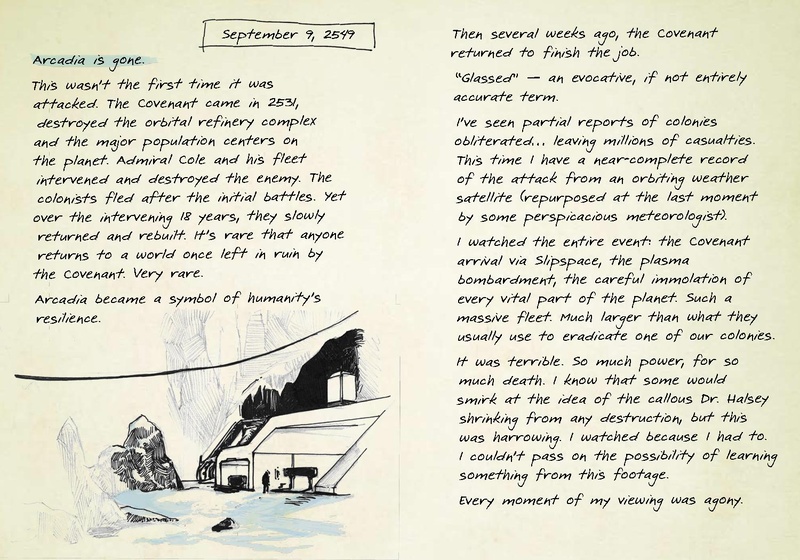 September 9, 2549
Arcadia is gone.
This wasn't the first time it was
attacked. The Covenant came in 2531,
destroyed the orbital refinery complex
and the major population centers on
the planet. Admiral Cole and his fleet
intervened and destroyed the enemy. The
colonists fled after the initial battles. Yet
over the intervening 18 years, they slowly
returned and rebuilt. It's rare that anyone
returns to a world once left in ruin by
the Covenant. Very rare.
Arcadia became a symbol of humanity's
resilience.
Then several weeks ago, the Covenant
returned to finish the job.
"Glassed" — an evocative, if not entirely
accurate term.
I've seen partial reports of colonies
obliterated... leaving millions of casualties.
This time I have a near-complete record
of the attack from an orbiting weather
satellite (repurposed at the last moment
by some perspicacious meteorologist).
I watched the entire event: the Covenant
arrival via Slipspace, the plasma
bombardment, the careful immolation of
every vital part of the planet. Such a
massive fleet. Much larger than what they
usually use to eradicate one of our colonies.
It was terrible. So much power, for so
much death. I know that some would
smirk at the idea of the callous Dr. Halsey
shrinking from any destruction, but this
was harrowing. I watched because I had to.
I couldn't pass on the possibility of learning
something from this footage.
Every moment of my viewing was agony.